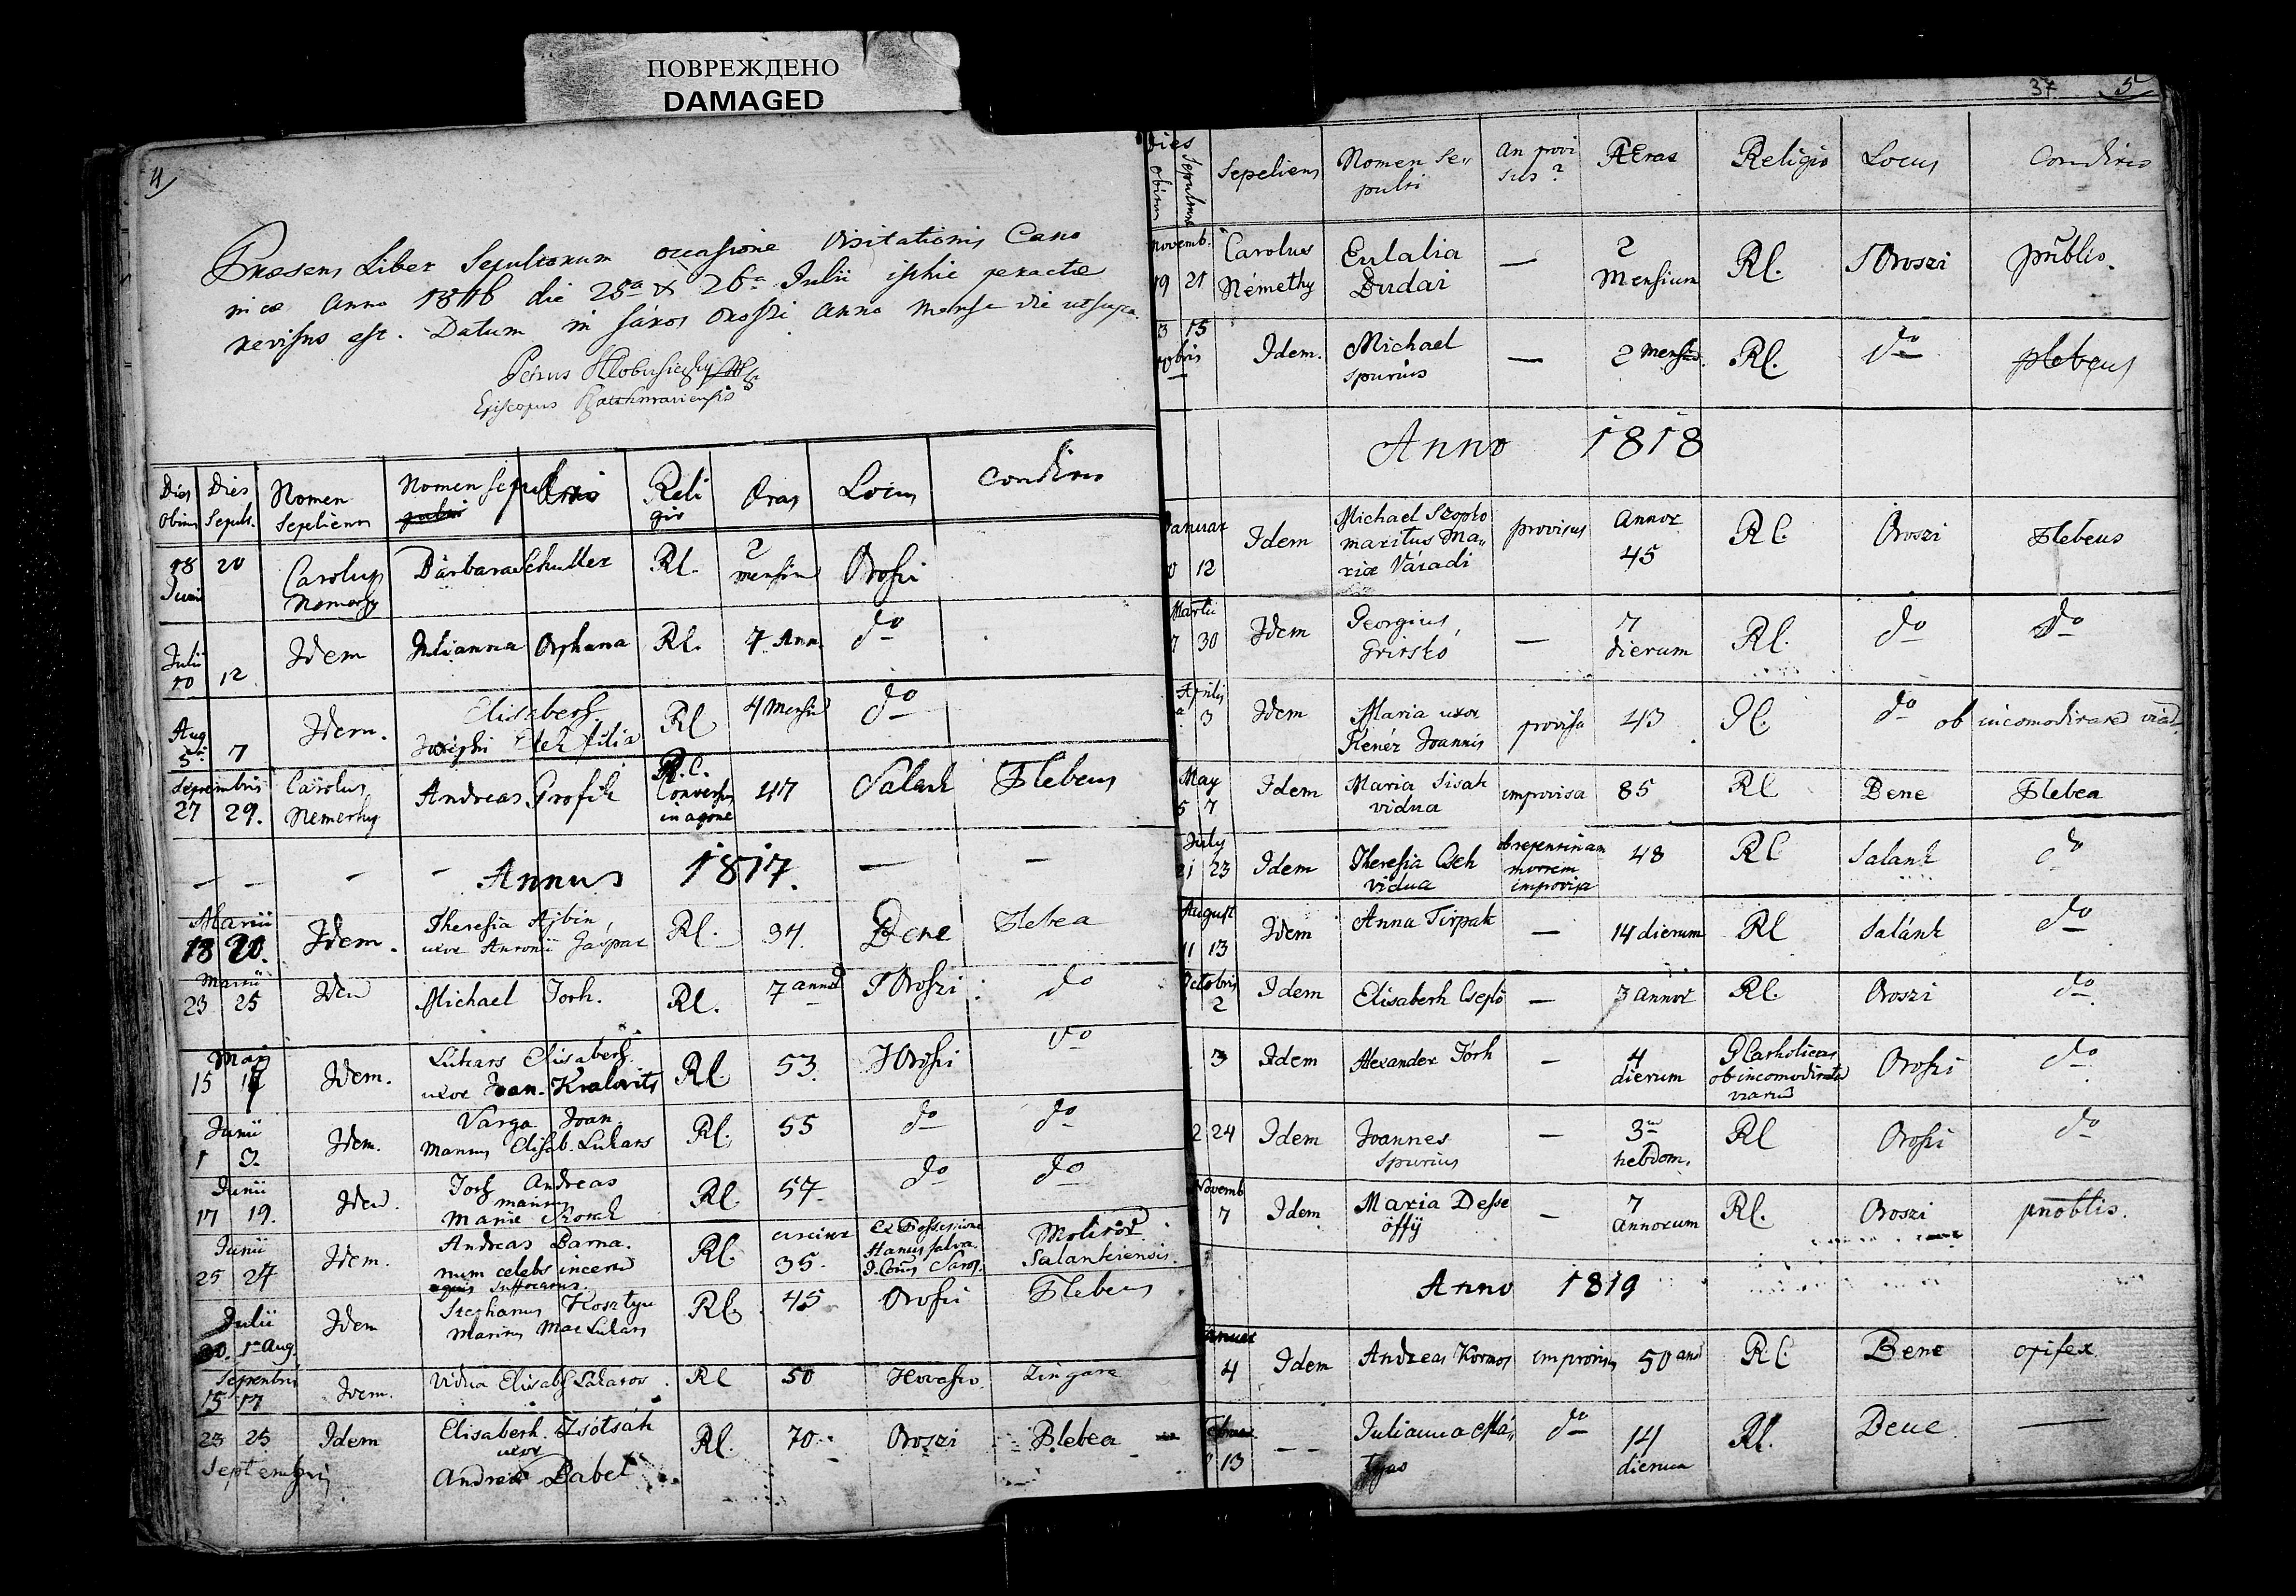 ПОВРЕЖДЕНО
DAMAGED
4
Praesens Liber Sepultorum occasione Visitationis Cano
nicae Anno 1816 die 25a & 26a Julii isthic peractae
revisus est. Datum in Sáros Oroszi anno mense die ut supra
Petrus Klobusiczky
Episcopus Szatthmariensis
Dies Obitus Dies Sepult. Nomen Sepelientis Nomen Sepulti Religio Aetas Locus Conditio
18 Junii 20 Carolus Nemethy Barbara Schuller Rl. 2 mensium Oroszi
Julii 10 12 Idem Julianna Orphana Rl. 7 Ann. do
Aug 5a 7 Idem. Elisabeth Josephi Elek filia Rl 4 Mensium do
Septembris 27 29. Carolus Nemethy Andreas Profik R.C. Conversus in agone 47 Salank Plebeus
Annus 1817.
Martii 18 20. Idem. Theresia Ajbin, uxor Antonii Gáspár Rl. 37. Bene Plebea
Martii 23 25 Idem Michael Toth. Rl. 7 annor TOroszi do
Maji 15 17 Idem. Lukats Elisabeth uxor Joan. Kralovits Rl. 53. TOroszi do
Junii 1 3. Idem. Varga Joan. Maritus Elisab. Lukats Rl. 55 do do
Junii 17 19. Idem. Toth Andreas maritus Mariae Rl. 57. do do
Junii 25 27 Idem. Andreas Barna. num celebs incertum aquis suffocatus. Rl. circiter 35. Molitor Salankiensis.
Julii 30. 1a Aug. Idem Stephanus Kosztyu Maritus Mar Lukats Rl. 45 Oroszi Plebeus
Septembris 15 17 Idem. Vidua Elisabeth Lakatos Rl 50 Zingara
23 25 Septembris Idem Elisabeth Zsótsák uxor Andreae Babel Rl. 70. Oroszi Plebea
37 5
Dies obitus Sepulturae Sepeliens Nomen Se- pulti An provi sus? AEtas Religio Locus Conditio
Novemb. 19 21 Carolus Némethy Eulalia Budai — 2 Mensium Rl. TOroszi
13 15 Idem. Michael spurius — 2 mensium Rl. do plebeus
Anno 1818
Januar 12 Idem Michael Szopko maritus Ma- riae Váradi provisus annor 45 Rl. Oroszi Plebeus
Martii 30 Idem Georgius Gritskó — 7 dierum Rl. do do
Aprilis 3 Idem Maria uxor Kenéz Joannis provisa 43 Gl. do ob incomoditatem viae
May 5 7 Idem Maria Sisak vidua improvisa 85 Rl Bene Plebea
July 21 23 Idem Theresia Cseh vidua ob repentinam mortem improvisa 48 Rl Salank do
August 11 13 Idem Anna Tirpak — 14 dierum Rl Salánk do
Octobris 2 Idem Elisabeth Csepló — 3 Annor Rl. Oroszi do
3 Idem Alexander Tóth — 4 dierum G Catholicus ob incomoditatem viarum Oroszi do
24 Idem Joannes spurius — 3um hebdom. Rl Oroszi do
Novemb 7 Idem Maria Desse öffÿ — 7 annorum Rl. Oroszi
Anno 1819
Januar 4 Idem Andreas Kormos improvisus 50 ann Rl Bene opifex
13 Julianna Má- tyas do 14 dierum Rl. Bene —